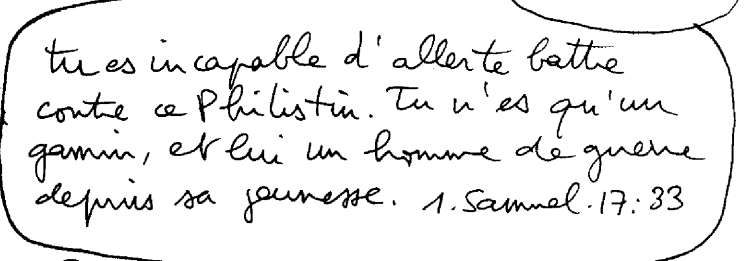 tu es incapable d'aller te battre
contre ce Philistin. Tu n'es qu'un
gamin, et lui un homme de guerre
depuis sa jeunesse. 1. Samuel. 17:33